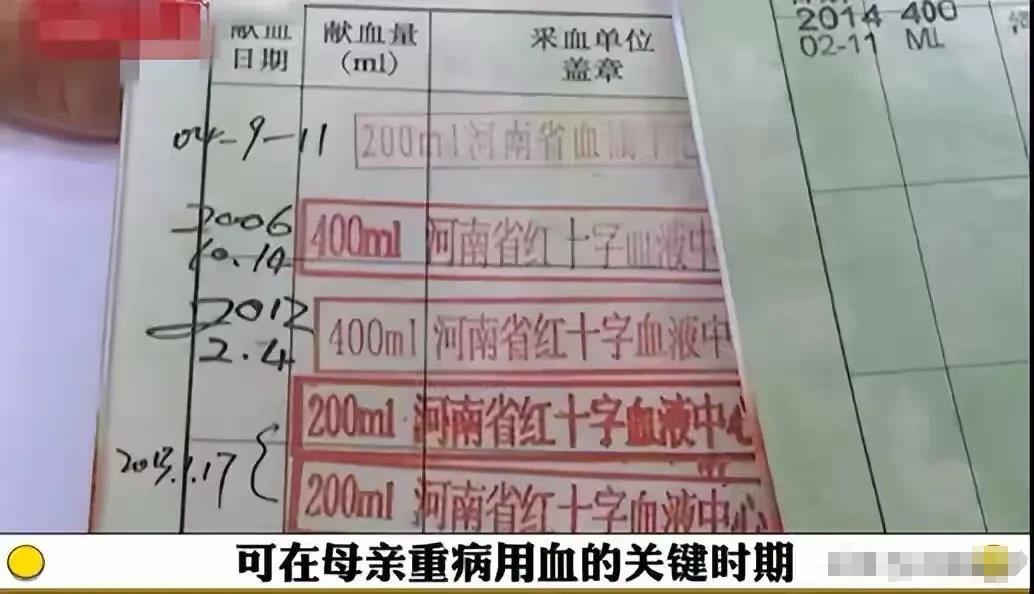 献血
日期
献血量
(ml)
采血单位
盖章
04-9-11
200ml河南省血
2006
10.14
400ml 河南省红十字血液中
2012
2.4
400ml 河南省红十字血液中
200ml 河南省红十字血液中心
2013.1.17
200ml 河南省红十字血液中心
2014 400
02-11 ML
可在母亲重病用血的关键时期